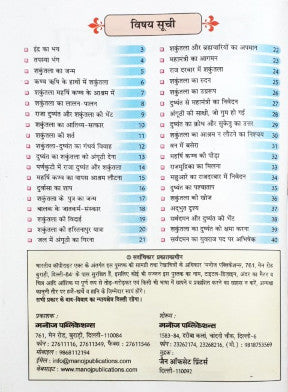 विषय सूची
इंद्र का भय 3
तपस्या भंग 4
शकुंतला का जन्म 5
कण्व ऋषि के हाथों में शकुंतला 6
शकुंतला महर्षि कण्व के आश्रम में 7
शकुंतला का लालन-पालन 8
राजा दुष्यंत और शकुंतला की भेंट 9
शकुंतला का आतिथ्य-सत्कार 10
शकुंतला की शर्त 11
शकुंतला-दुष्यंत का गंधर्व विवाह 12
दुष्यंत का शकुंतला को अंगूठी देना 13
पर्णकुटी में राजा दुष्यंत और शकुंतला 14
महर्षि कण्व का वापस आश्रम लौटना 15
दुर्वासा का शाप 16
शकुंतला के पुत्र का जन्म 17
बालक के जातकर्म-संस्कार 18
शकुंतला की विदाई 19
शकुंतला की हस्तिनापुर यात्रा 20
जल में अंगूठी का गिरना 21
शकुंतला और ब्रह्मचारियों का अपमान 22
महामात्री का आगमन 23
राज दरबार में शकुंतला 24
शकुंतला का रूदन 25
शकुंतला का उग्ररूप 26
दुष्यंत से महामात्री का निवेदन 27
अंगूठी की साक्षी, वो गुम हो गई 28
दुष्यंत का क्रोध और सुकेतु का उत्तर 29
शकुंतला का आश्रम न लौटने का निश्चय 30
वन में बसेरा 31
महर्षि कण्व की पीड़ा 32
राजमुद्रिका का मिलना 33
मछुआरे का राजदरबार में निवेदन 34
दुष्यंत का पश्चाताप 35
शकुंतला की खोज 36
अद्भुत दृश्य 37
सर्वदमन और दुष्यंत की भेंट 38
शकुंतला का दुष्यंत को क्षमा करना 39
सर्वदमन का युवराज पद पर अभिषेक 40
© सर्वाधिकार प्रकाशकाधीन
भारतीय कॉपीराइट एक्ट के अंतर्गत इस पुस्तक की सामग्री तथा रेखाचित्रों के अधिकार 'मनोज पब्लिकेशन्स, 761, मेन रोड
बुराड़ी, दिल्ली-84' के पास सुरक्षित हैं, इसलिए कोई भी सज्जन इस पुस्तक का नाम, टाइटल-डिजाइन, अंदर का मैटर व
चित्र आदि आंशिक या पूर्ण रूप से तोड़-मरोड़कर एवं किसी भी भाषा में छापने व प्रकाशित करने का साहस न करें, अन्यथा
कानूनी तौर पर हर्जे-खर्चे व हानि के जिम्मेदार स्वयं होंगे।
सभी प्रकार के वाद-विवाद का न्यायक्षेत्र दिल्ली रहेगा।
प्रकाशक :
मनोज पब्लिकेशन्स
761, मेन रोड, बुराड़ी, दिल्ली-110084
फोन : 27611116, 27611349, फैक्स : 27611546
मोबाईल : 9868112194
ईमेल : info@manojpublications.com
शोरूम :
मनोज पब्लिकेशन्स
1583-84, दरीबा कलां, चांदनी चौक, दिल्ली-6
फोन : 23262174, 23268216, मो. : 9818753569
मुद्रक :
जैन ऑफसेट प्रिंटर्स
दिल्ली-110092